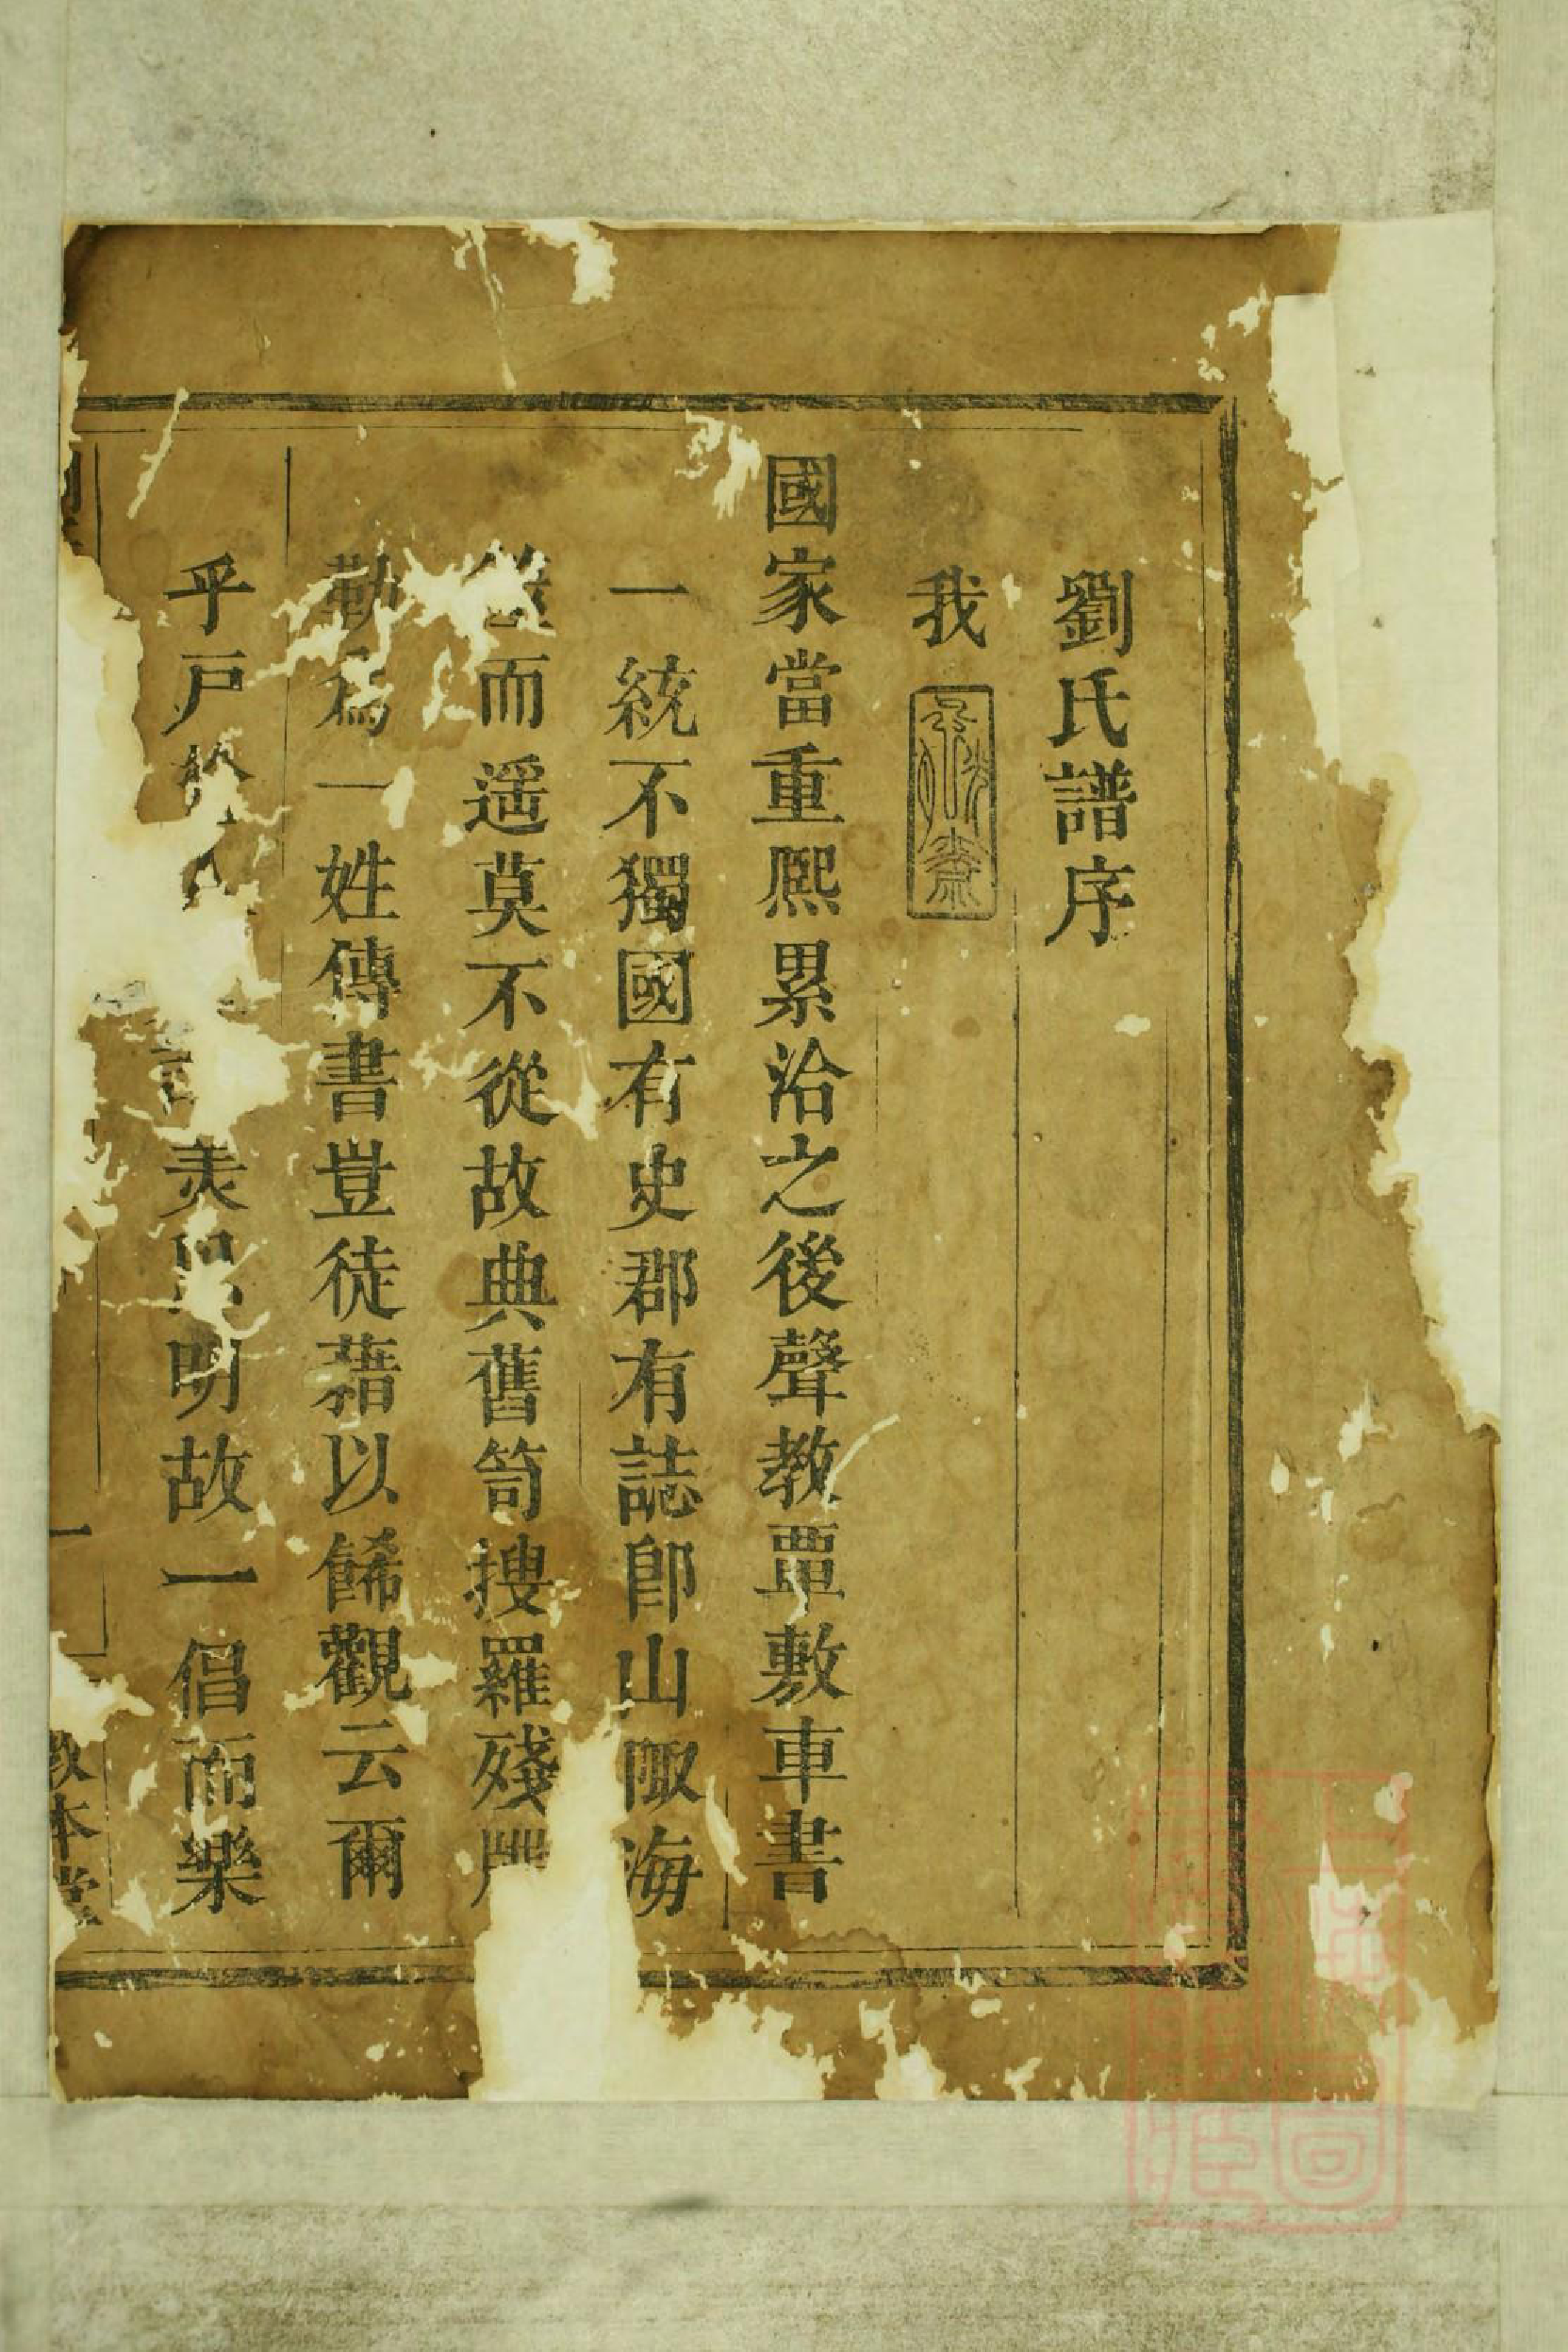 劉氏譜序
我
國家當重熈累洽之後聲教覃敷車書
一統不獨國有史郡有誌卽山陬海
而遥莫不從故典舊笥搜羅殘
勒爲一姓傳書豈徒藉以餙觀云爾
乎戸 明故一倡而樂
一
敦本堂